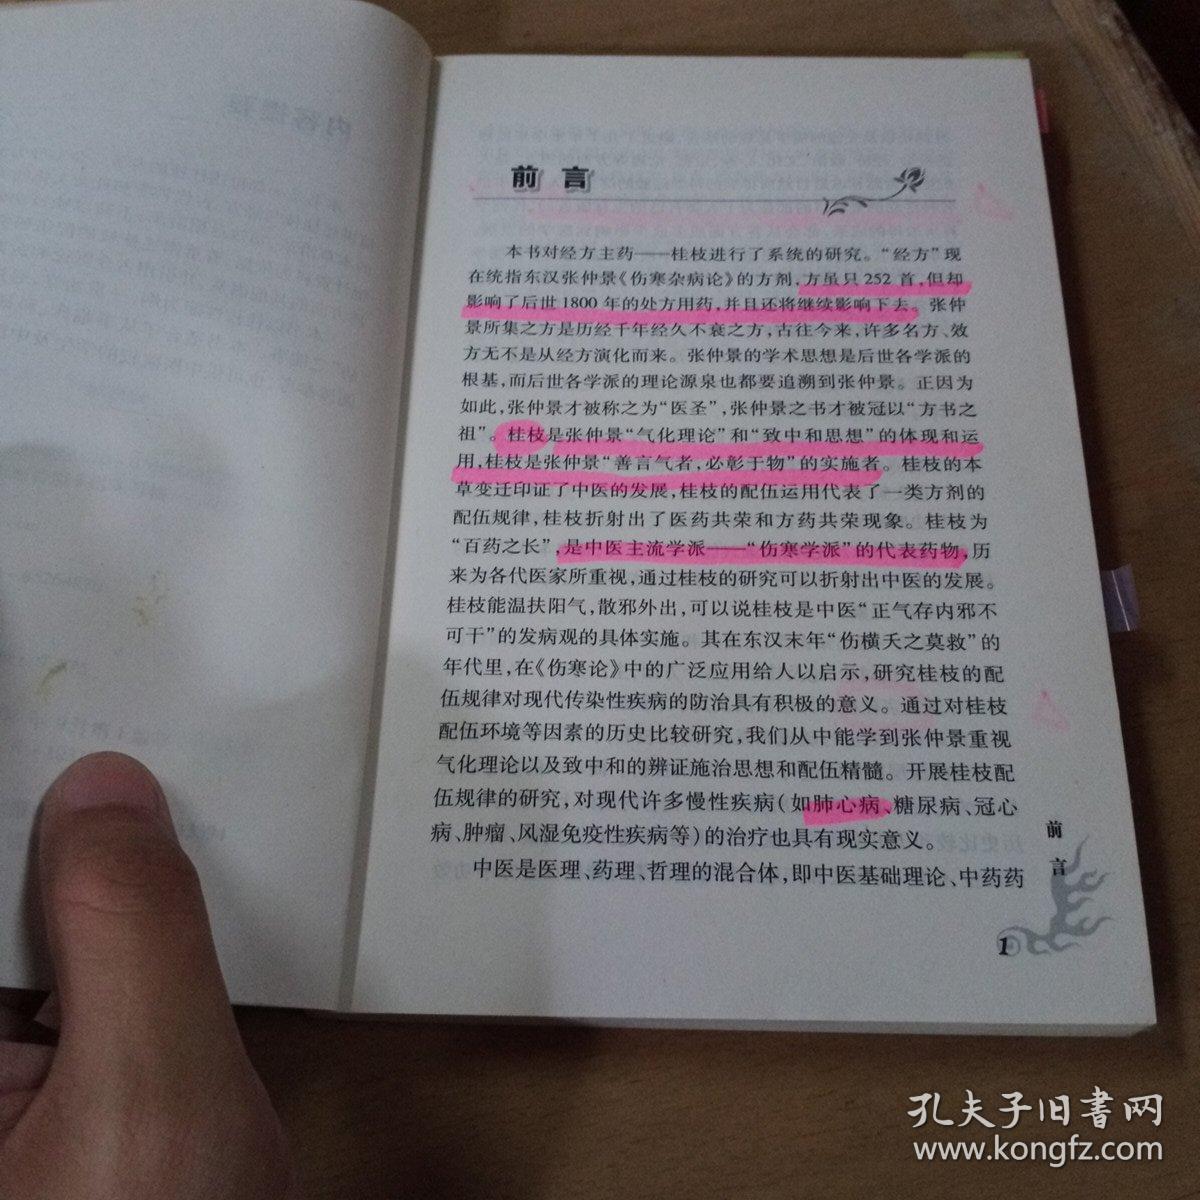 前言
本书对经方主药——桂枝进行了系统的研究。“经方”现
在统指东汉张仲景《伤寒杂病论》的方剂,方虽只252首,但却
影响了后世1800年的处方用药,并且还将继续影响下去。张仲
景所集之方是历经千年经久不衰之方,古往今来,许多名方、效
方无不是从经方演化而来。张仲景的学术思想是后世各学派的
根基,而后世各学派的理论源泉也都要追溯到张仲景。正因为
如此,张仲景才被称之为“医圣”,张仲景之书才被冠以“方书之
祖”。桂枝是张仲景“气化理论”和“致中和思想”的体现和运
用,桂枝是张仲景“善言气者,必彰于物”的实施者。桂枝的本
草变迁印证了中医的发展,桂枝的配伍运用代表了一类方剂的
配伍规律,桂枝折射出了医药共荣和方药共荣现象。桂枝为
“百药之长”,是中医主流学派——“伤寒学派”的代表药物,历
来为各代医家所重视,通过桂枝的研究可以折射出中医的发展。
桂枝能温扶阳气,散邪外出,可以说桂枝是中医“正气存内邪不
可干”的发病观的具体实施。其在东汉末年“伤横夭之莫救”的
年代里,在《伤寒论》中的广泛应用给人以启示,研究桂枝的配
伍规律对现代传染性疾病的防治具有积极的意义。通过对桂枝
配伍环境等因素的历史比较研究,我们从中能学到张仲景重视
气化理论以及致中和的辨证施治思想和配伍精髓。开展桂枝配
伍规律的研究,对现代许多慢性疾病(如肺心病、糖尿病、冠心
病、肿瘤、风湿免疫性疾病等)的治疗也具有现实意义。
中医是医理、药理、哲理的混合体,即中医基础理论、中药药
前言
1
孔夫子旧书网
www.kongfz.com